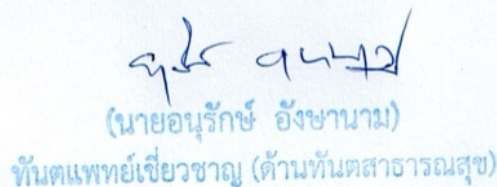 (นายอนุรักษ์ อังษานาม)
ทันตแพทย์เชี่ยวชาญ (ด้านทันตสาธารณสุข)